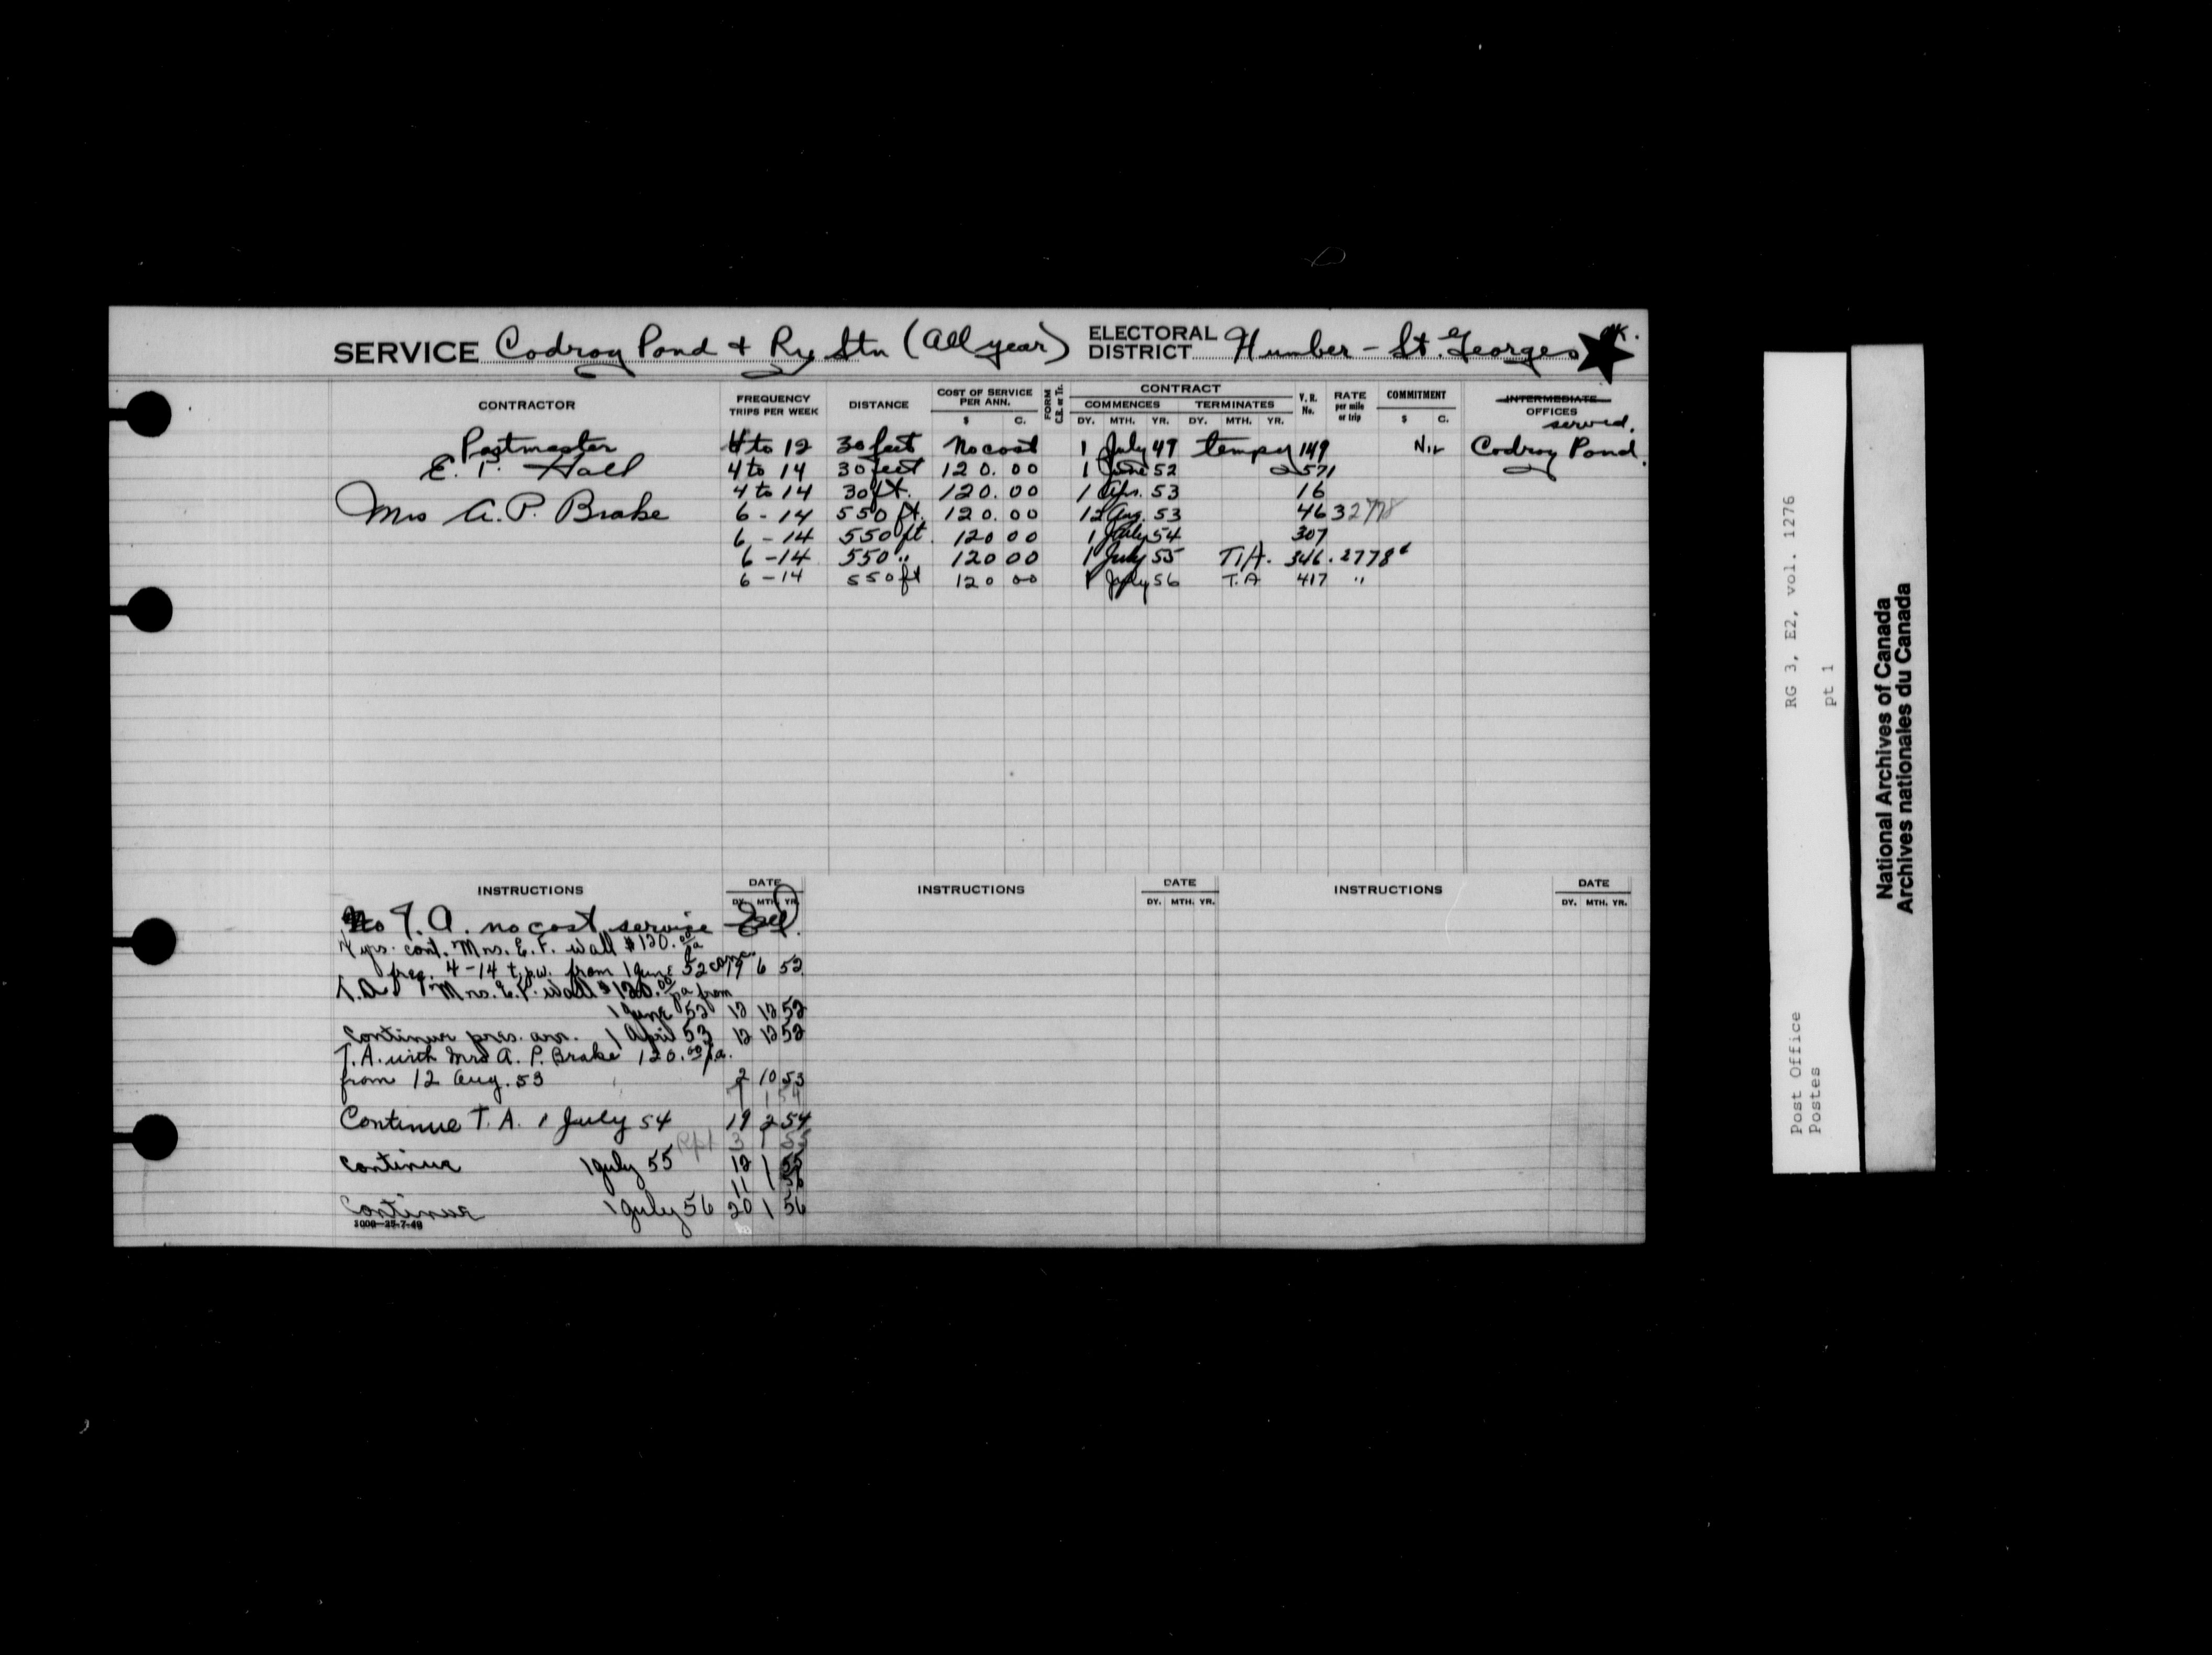 SERVICE Codroy Pond & Ry Stn (All year) ELECTORAL DISTRICT Humber - St. Georges OK.
CONTRACTOR FREQUENCY TRIPS PER WEEK DISTANCE COST OF SERVICE PER ANN. $ C. FORM C.B. or Tr. CONTRACT COMMENCES DY. MTH. YR. TERMINATES DY. MTH. YR. V.R. No. RATE per mile or trip COMMITMENT $ C. INTERMEDIATE OFFICES served.
Postmaster 4 to 12 30 feet No cost 1 July 49 tempy 149 Nil Codroy Pond.
E. F. Hall 4 to 14 30 feet 120.00 1 June 52 2571
4 to 14 30 ft. 120.00 1 Apr. 53 16
Mrs A. P. Brake 6 - 14 550 ft. 120.00 12 Aug. 53 463 2778
6 - 14 550 ft. 120 00 1 July 54 307
6 - 14 550 " 120 00 1 July 55 T/A. 346. 2778
6 - 14 550 ft 120 00 1 July 56 T.A 417 "
INSTRUCTIONS DATE DY. MTH. YR. INSTRUCTIONS DATE DY. MTH. YR. INSTRUCTIONS DATE DY. MTH. YR.
No T.A. no cost service
4 yrs. cont. Mrs. E. F. Wall $120.00 pa
freq. 4-14 t.p.w. from 1 June 52 conc. 19 6 52
T.A. Mrs. E. F. Wall $120.00 pa from
1 June 52 12 12 52
Continue pres. arr. 1 April 53 12 12 52
T.A. with Mrs A. P. Brake 120.00 p.a.
from 12 Aug. 53 2 10 53
7 1 54
Continue T.A. 1 July 54 19 2 54
Rpt 3 1 55
Continue 1 July 55 12 1 55
11 1 56
Continue 1 July 56 20 1 56
1000-25-7-49
RG 3, E2, vol. 1276
pt 1
Post Office
Postes
National Archives of Canada
Archives nationales du Canada